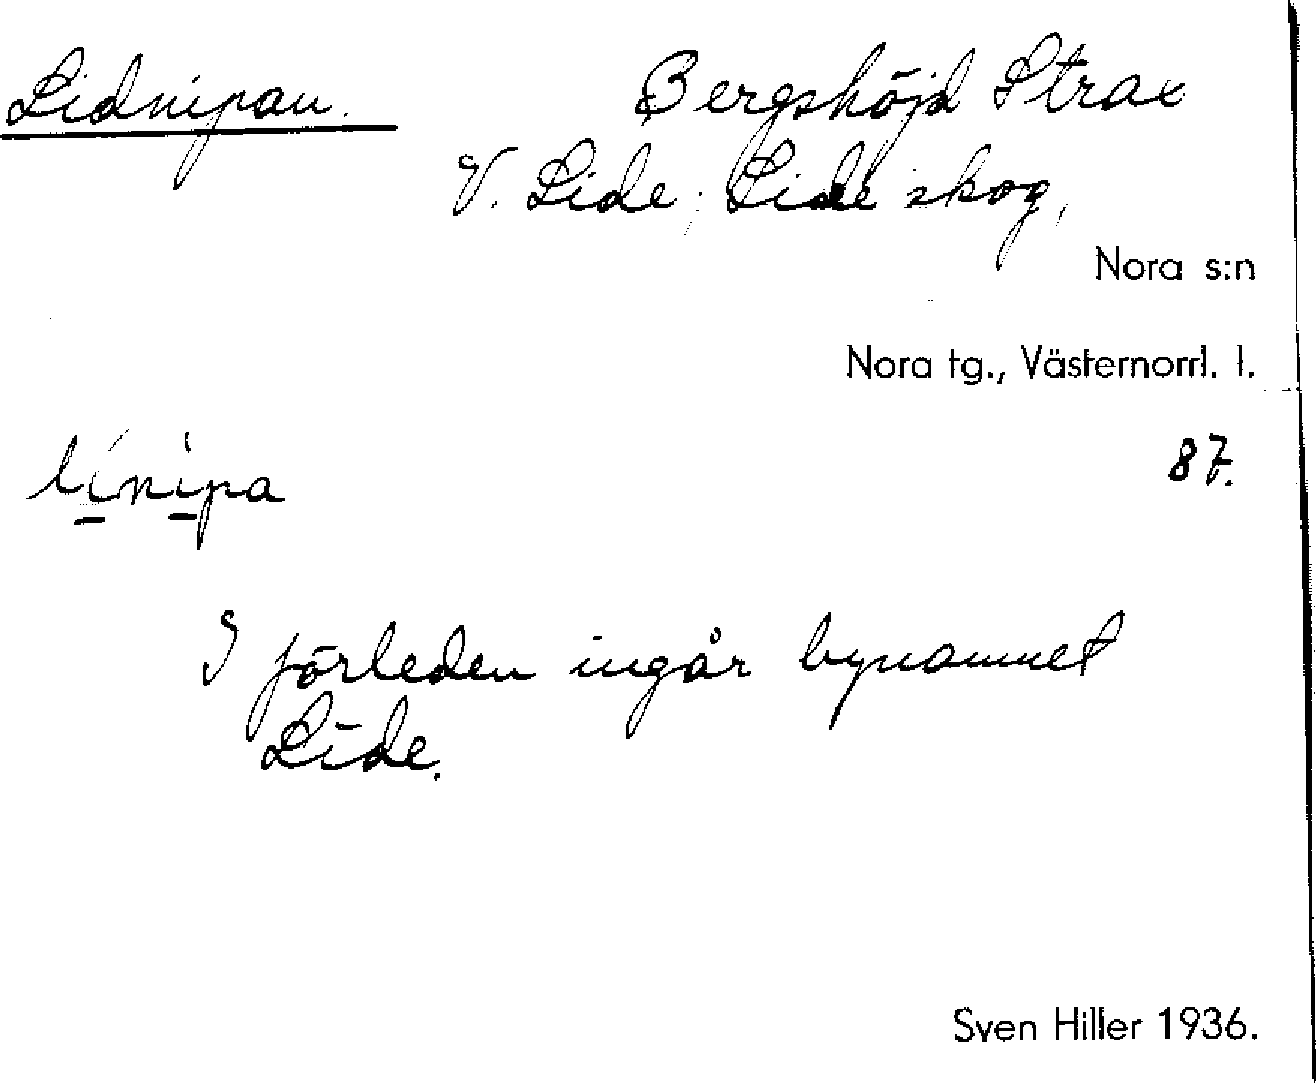 Lidnipan. Bergshöjd Strax
V. Lide; Lide skog,
Nora s:n
Nora tg., Västernorrl. l.
li̱´nì̱pa 87.
I förleden ingår bynamnet
Lide.
Sven Hiller 1936.